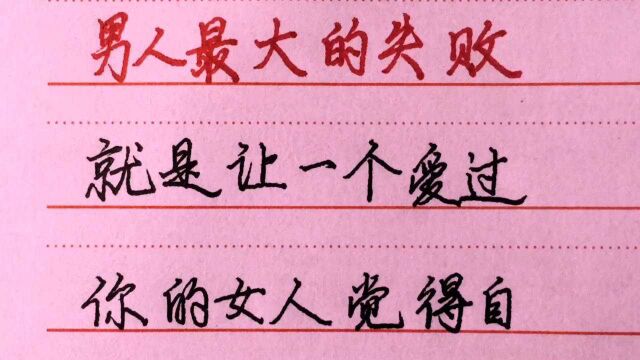 男人最大的失败
就是让一个爱过
你的女人觉得自